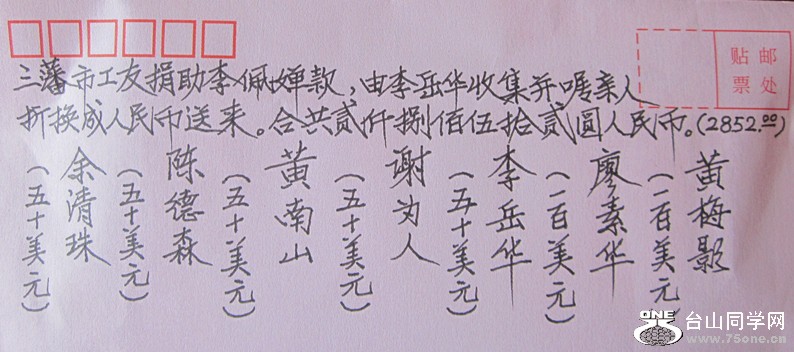 三藩市工友捐助李佩婵款，由李岳华收集并嘱亲人
折换成人民币送来。合共贰仟捌佰伍拾贰圆人民币。(2852.00)
黄梅影
(一百美元)
廖素华
(一百美元)
李岳华
(五十美元)
谢为人
(五十美元)
黄南山
(五十美元)
陈德森
(五十美元)
余清珠
(五十美元)
贴邮
票处
ONE
台山同学网
www.75one.cn